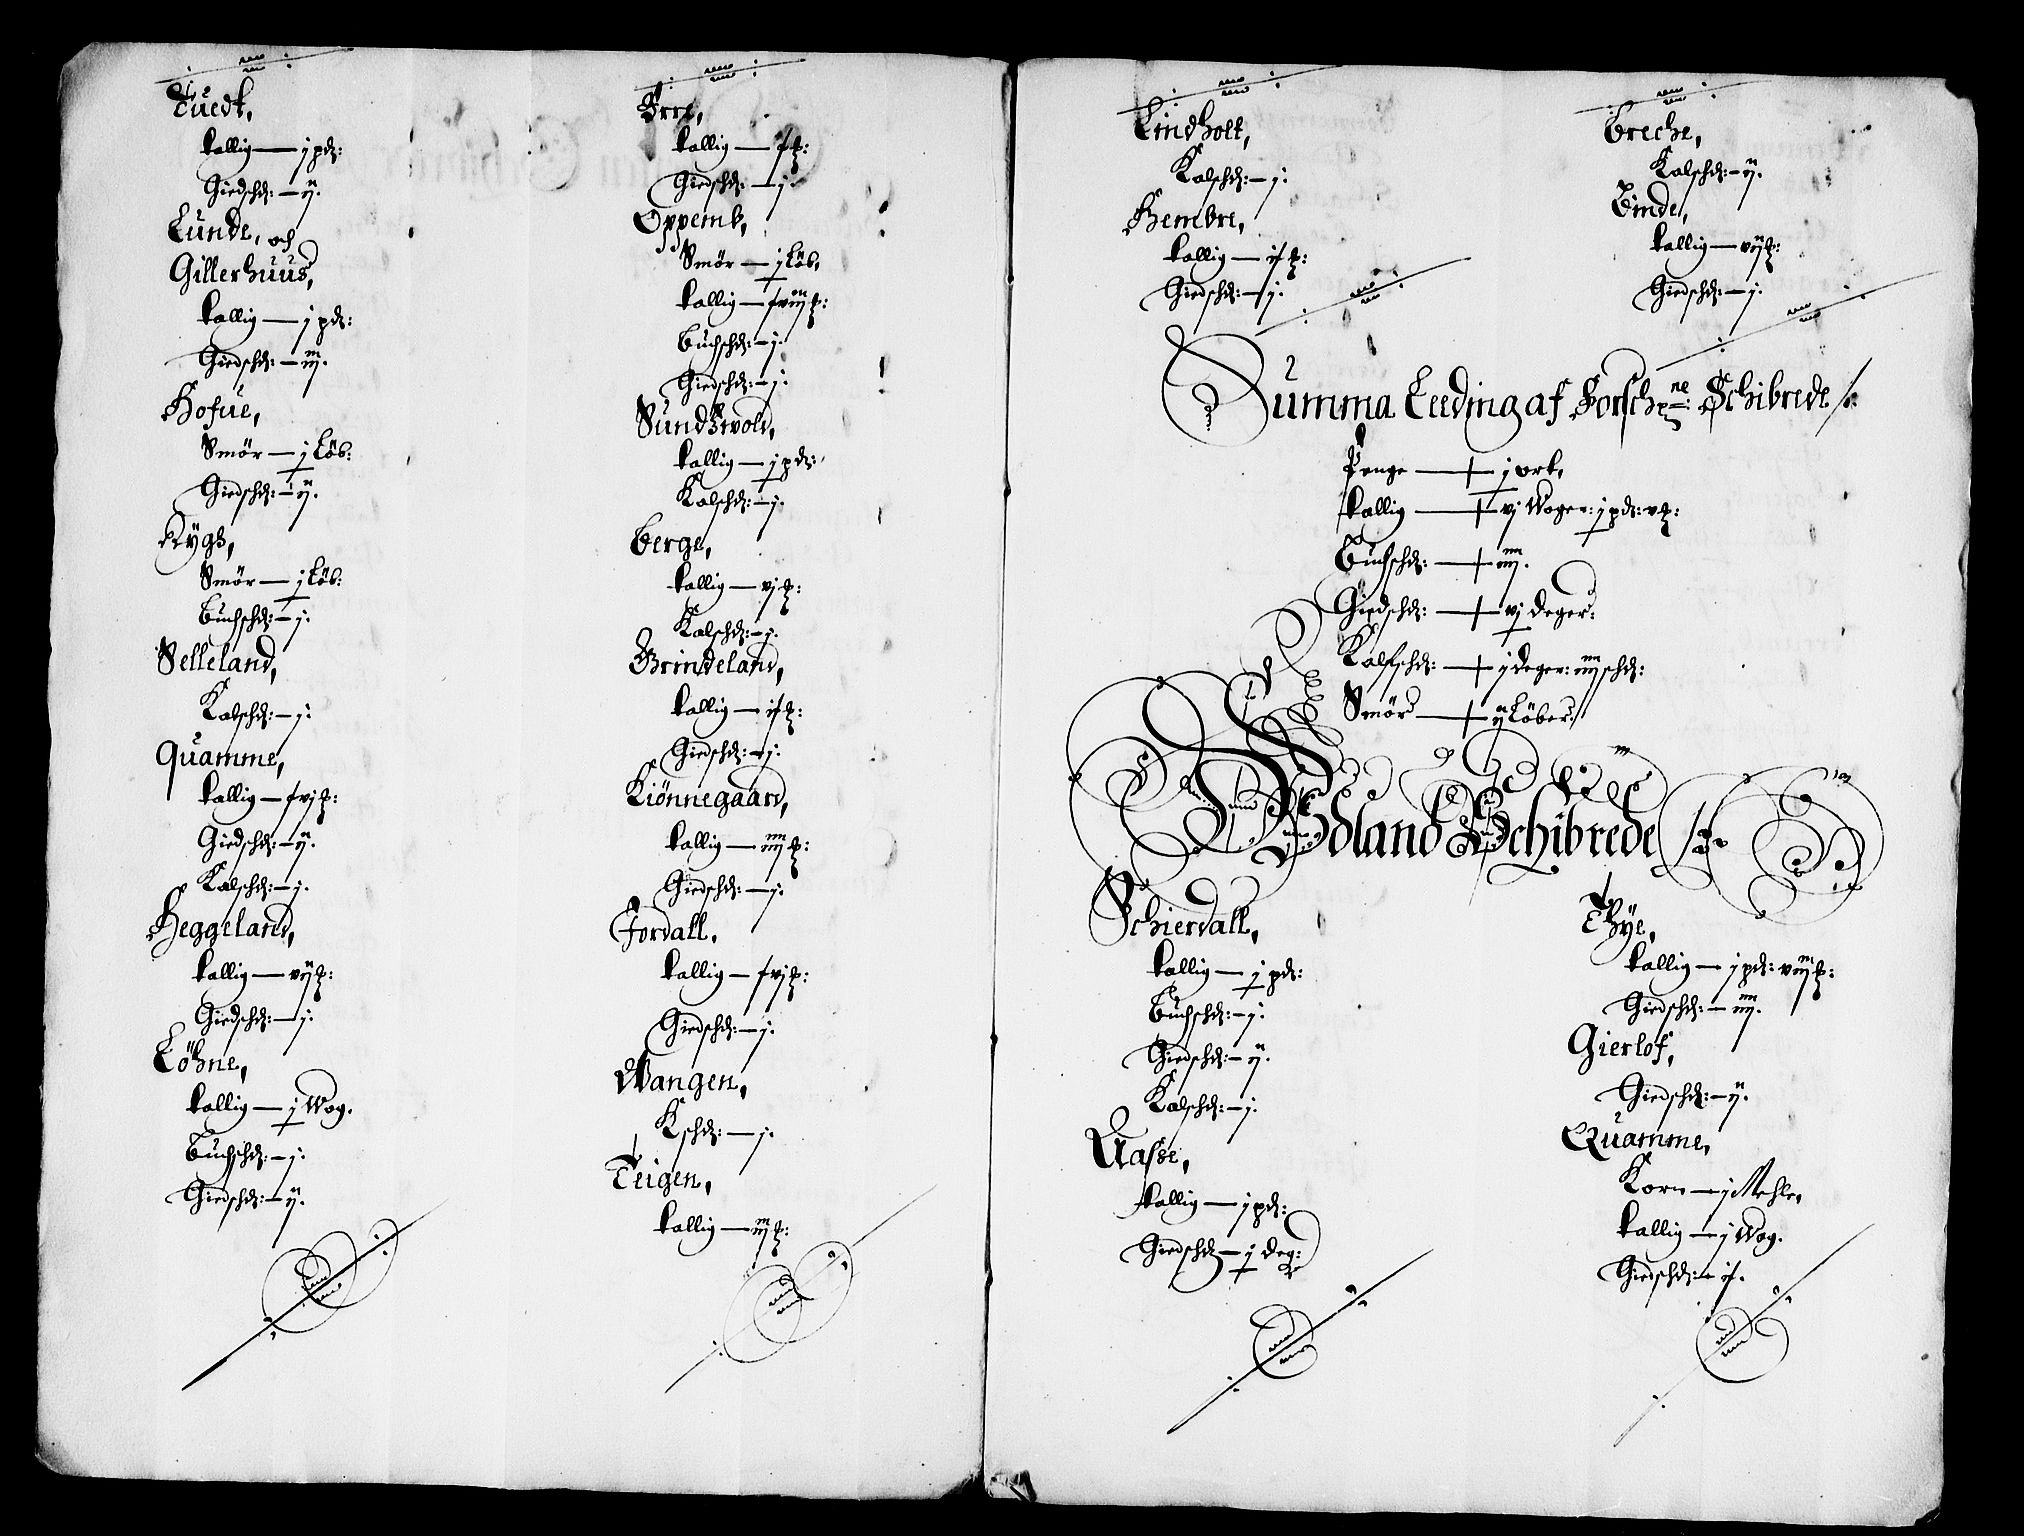 Tuedt,
kallig — j pd:
Giedschd: — ij.
Lunde, och
Gillerhuus,
kallig — j pd:
Giedschd: — iij.
Hofue,
Smör — j Löb:
Giedschd: — ij.
Rygh,
Smör — j Löb:
Buchschd: — j.
Selleland,
Kalschd: — j.
Quamme,
kallig —
Giedschd: — ij.
Kalschd: — j.
Heggeland,
kallig — vij
Giedschd: — j.
Löhne,
kallig — j Wog.
Buchschd: — j.
Giedschd: — ij.
Frre,
kallig —
Giedschd: — j.
Oppemb,
Smör — j Löb,
kallig —
Buchschd: — j.
Giedschd: — j.
Sundzwold,
kallig — j pd:
Kalschd: — j.
Berge,
kallig — vj
Kalschd: — j.
Grindeland,
kallig —
Giedschd: — j.
Kiönnegaard,
kallig — iiij
Giedschd: — j.
Fordall,
kallig —
Giedschd: — j.
Wangen,
Kschd: — j.
Teigen,
kallig — iij
Lindholt,
Kalschd: — j.
Hembre,
kallig —
Giedschd: — j.
Breche,
Kalschd: — ij.
Linde,
kallig — vij
Giedschd: — j.
Summa Leeding af Forsch: ne Schibrede
Penge — j ort,
kallig — vj Woger: j pd: v
Buchschd: — iiij.
Giedschd: — vj deger:
Kalfschd: — j deger: iiij schd:
Smör — ij Löber
Ædland Schibrede
Schierdall,
kallig — j pd:
Buchschd: — j.
Giedschd: — ij.
Kalschd: — j.
Aasse,
kallig — j pd:
Giedschd — j deg:
Thye,
kallig — j pd: viij
Giedschd: — iiij.
Gierlof,
Giedschd: — ij.
Quamme,
Korn — j Mehle,
kallig — j Wog.
Giedschd: —